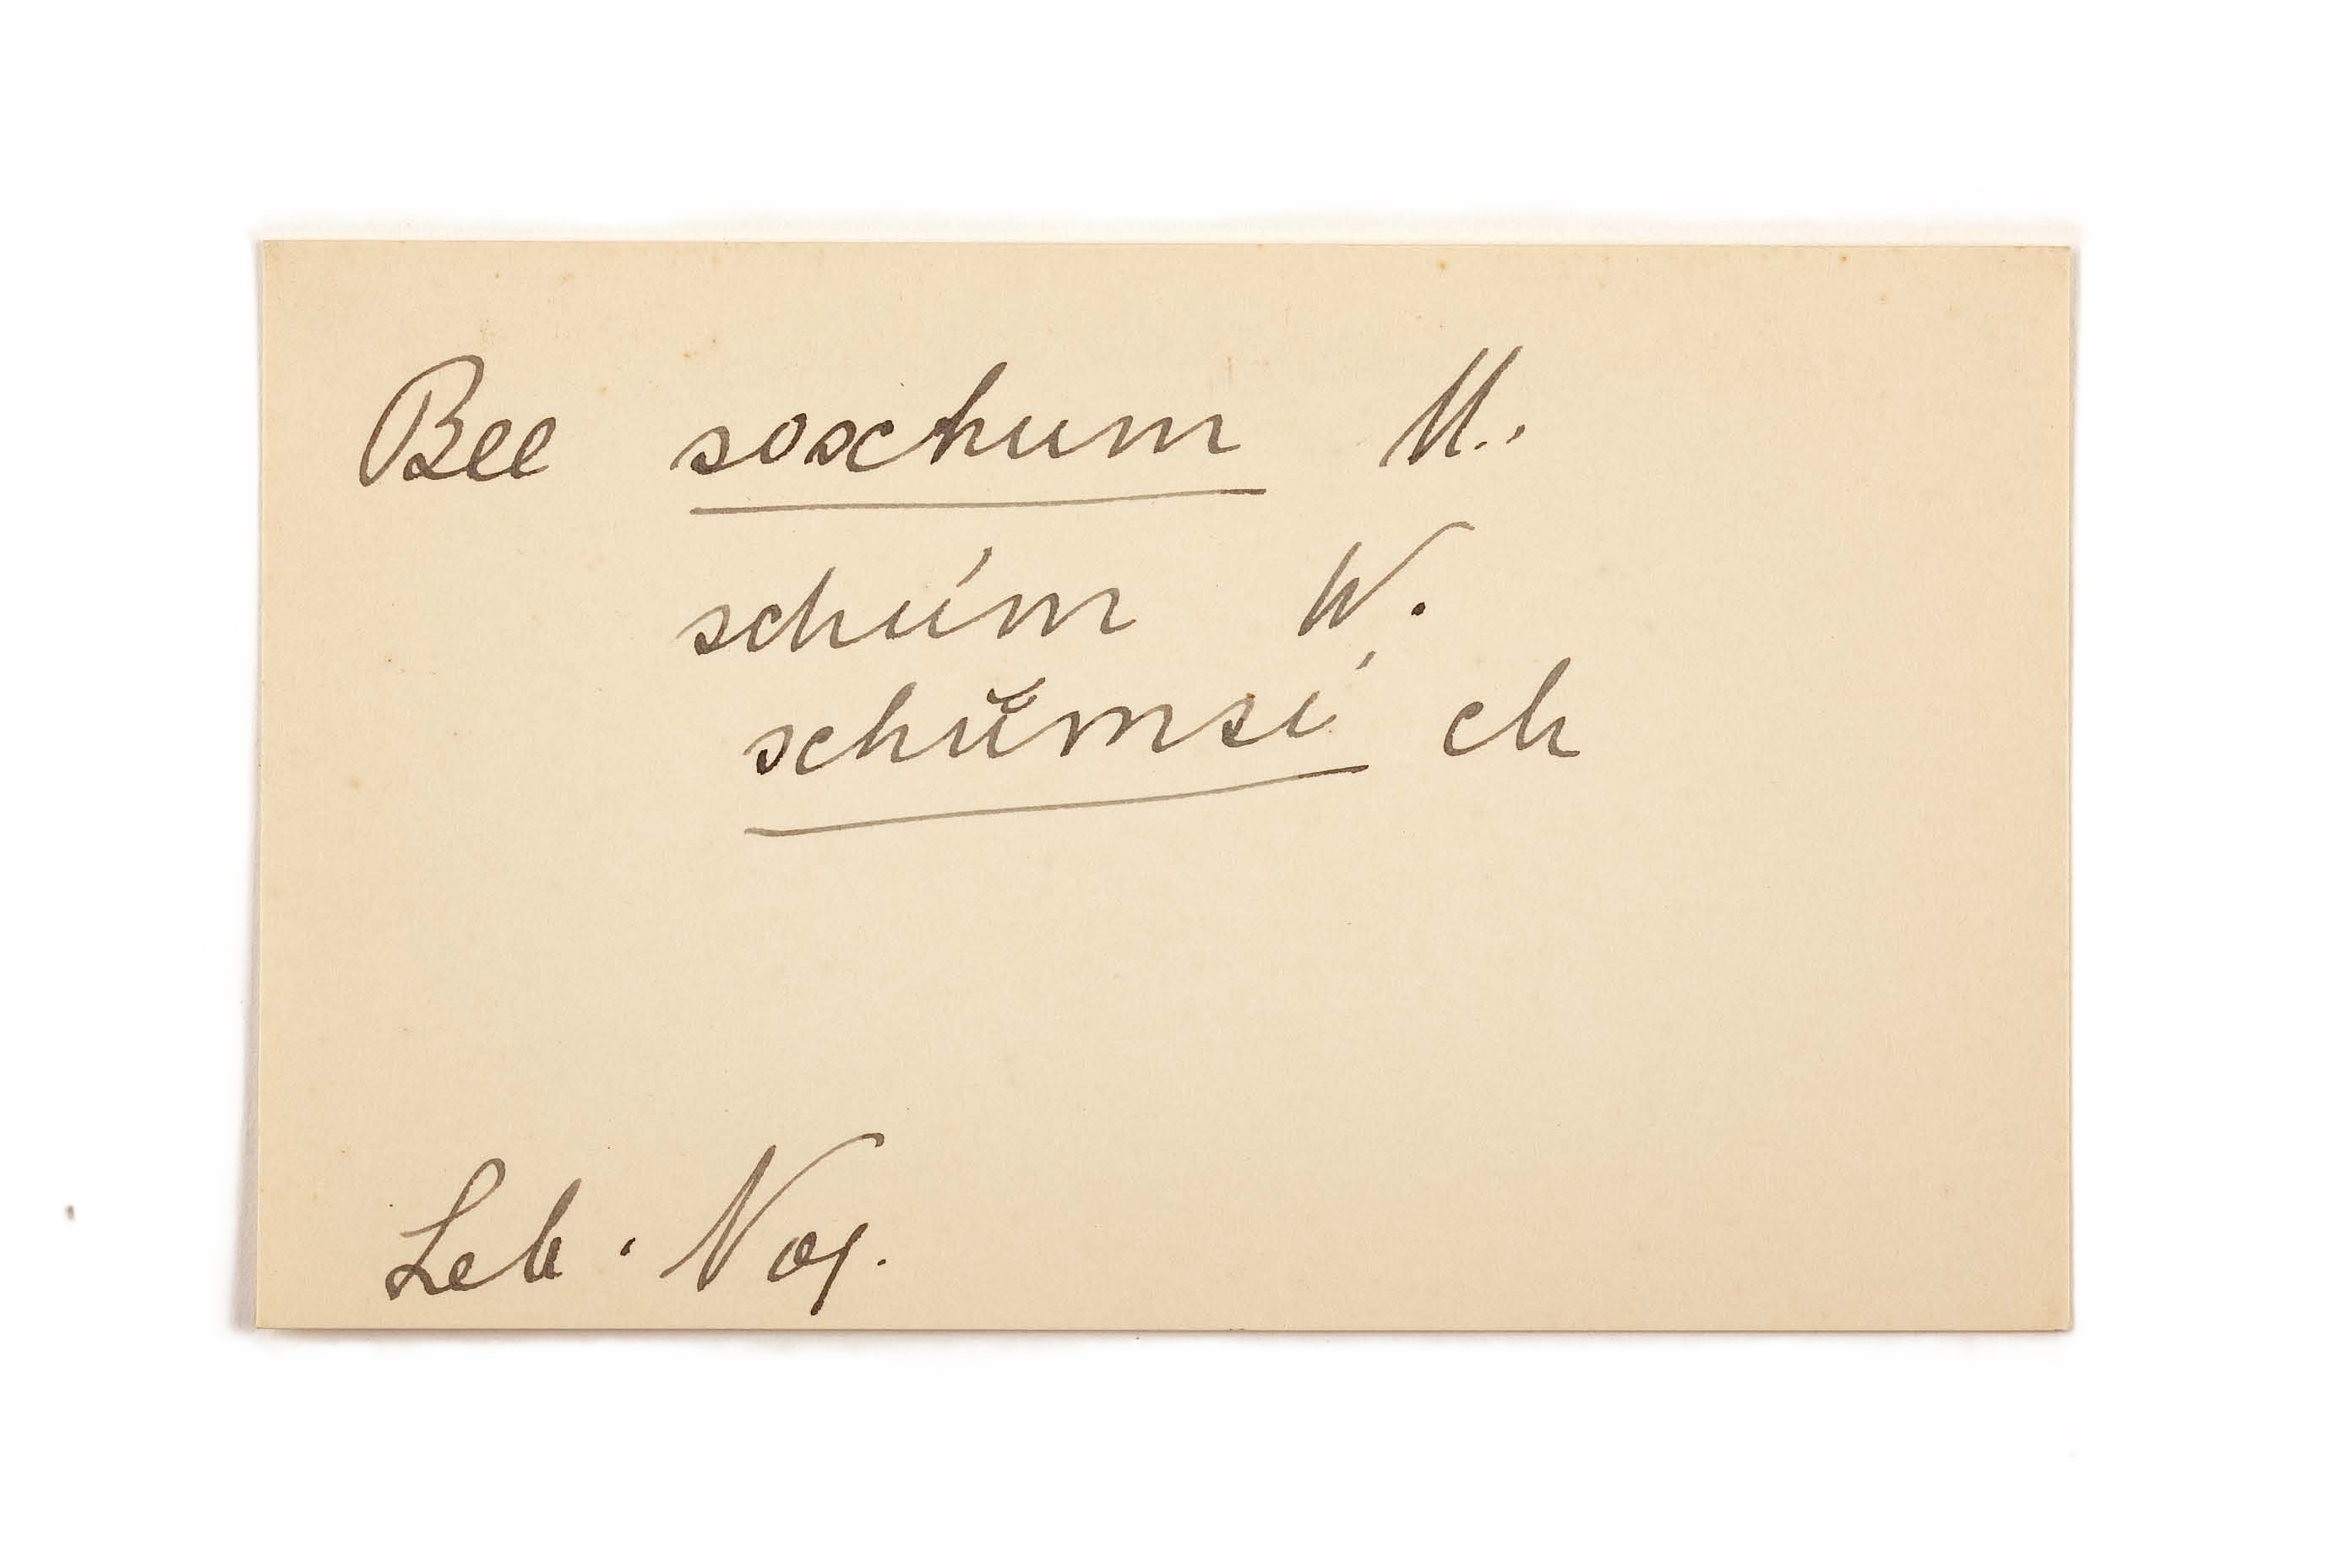 Bee soschum M.
schúm W.
schŭmsi' ch
Leb. Nog.